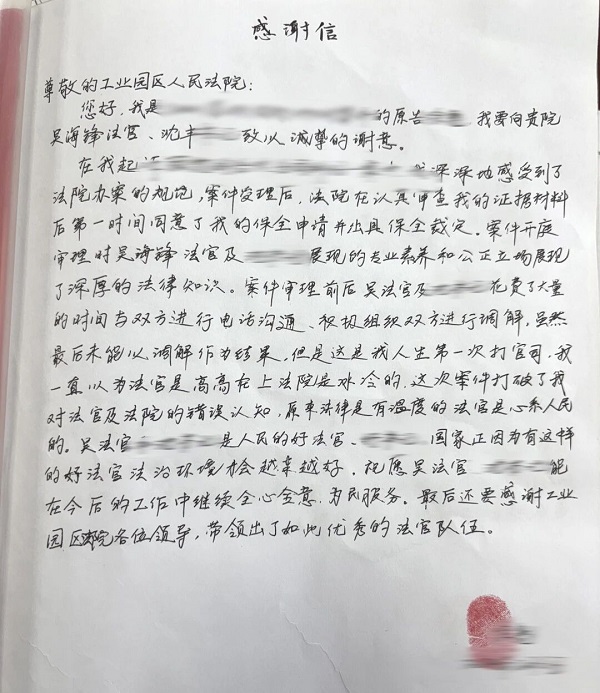 感谢信
尊敬的工业园区人民法院：
您好，我是 的原告 我要向贵院
吴海锋法官、沈丰 致以诚挚的谢意。
在我起 深深地感受到了
法院办案的规范，案件受理后，法院在认真审查我的证据材料
后第一时间同意了我的保全申请并出具保全裁定。案件开庭
审理时吴海锋法官及 展现的专业素养和公正立场展现
了深厚的法律知识。案件审理前后吴法官及 花费了大量
的时间与双方进行电话沟通、积极组织双方进行调解，虽然
最后未能以调解作为结果，但是这是我人生第一次打官司，我
一直以为法官是高高在上法院是冰冷的，这次案件打破了我
对法官及法院的错误认知，原来法律是有温度的法官是心系人民
的。吴法官 是人民的好法官、 国家正因为有这样
的好法官法治环境才会越来越好，祝愿吴法官 能
在今后的工作中继续全心全意，为民服务。最后还要感谢工业
园区法院各位领导，带领出了如此优秀的法官队伍。